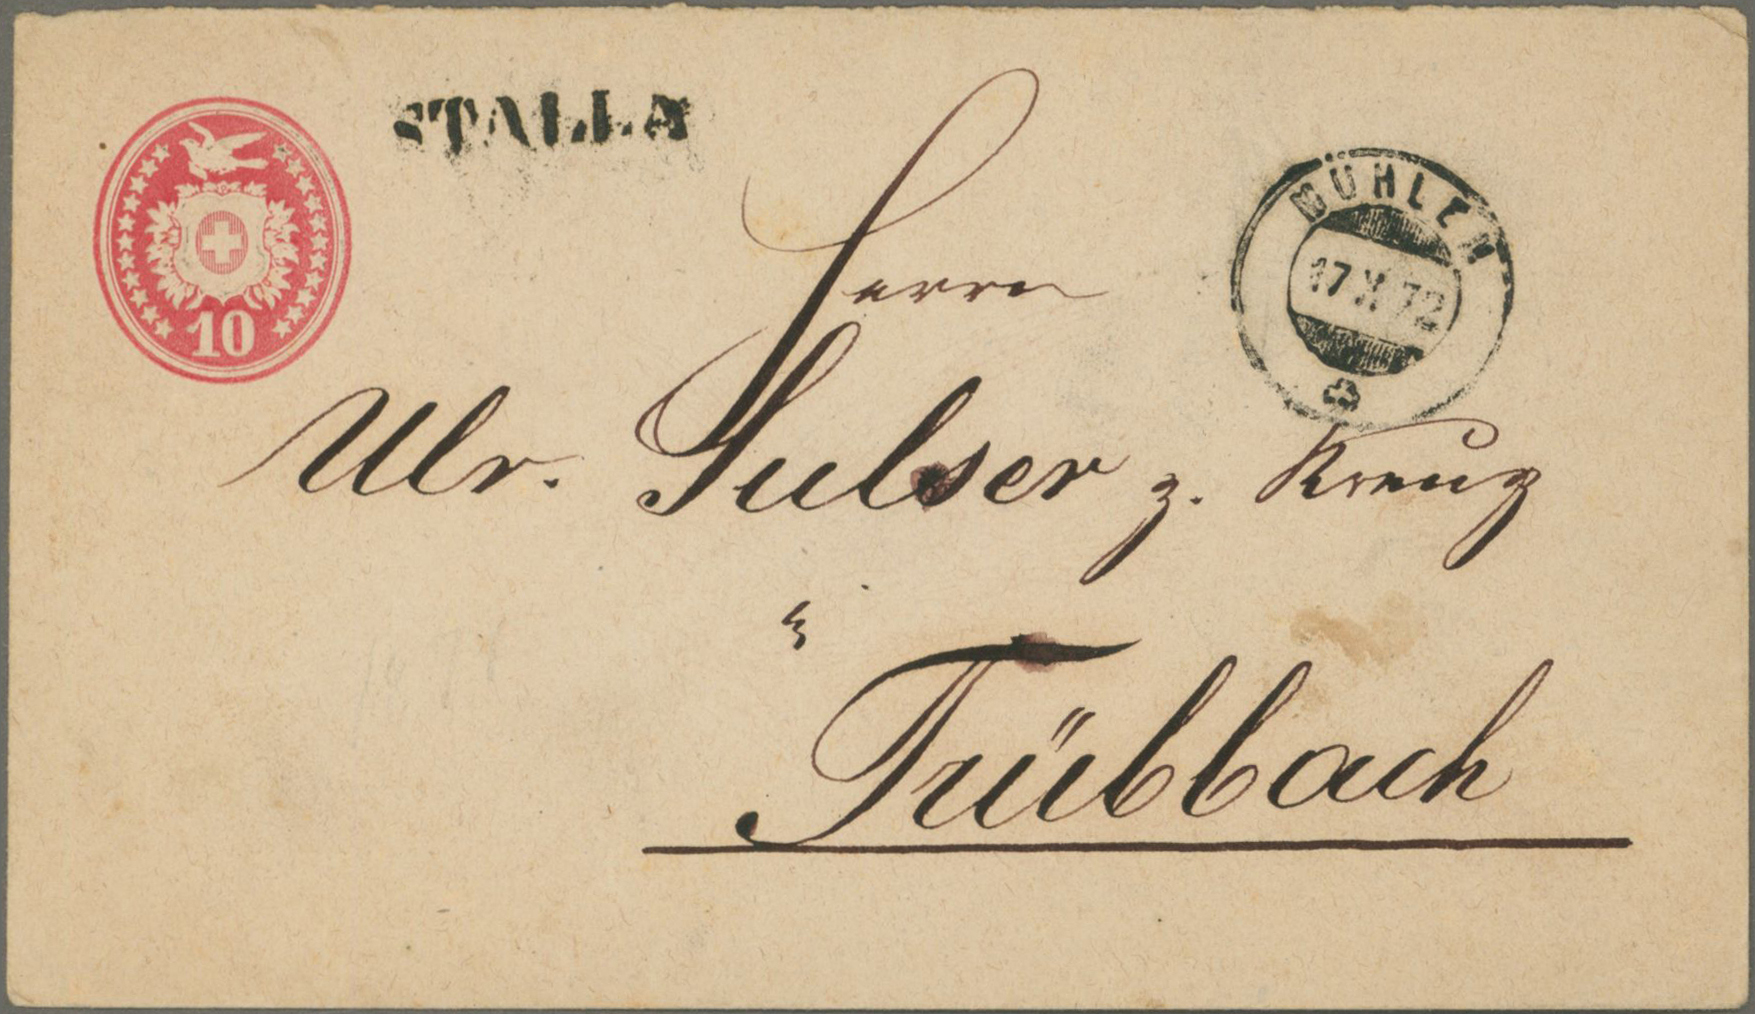 STALLA
10
MÜHLEN
17 X 72
Herrn
Ulr. Sulser z. Kreuz
Trübbach